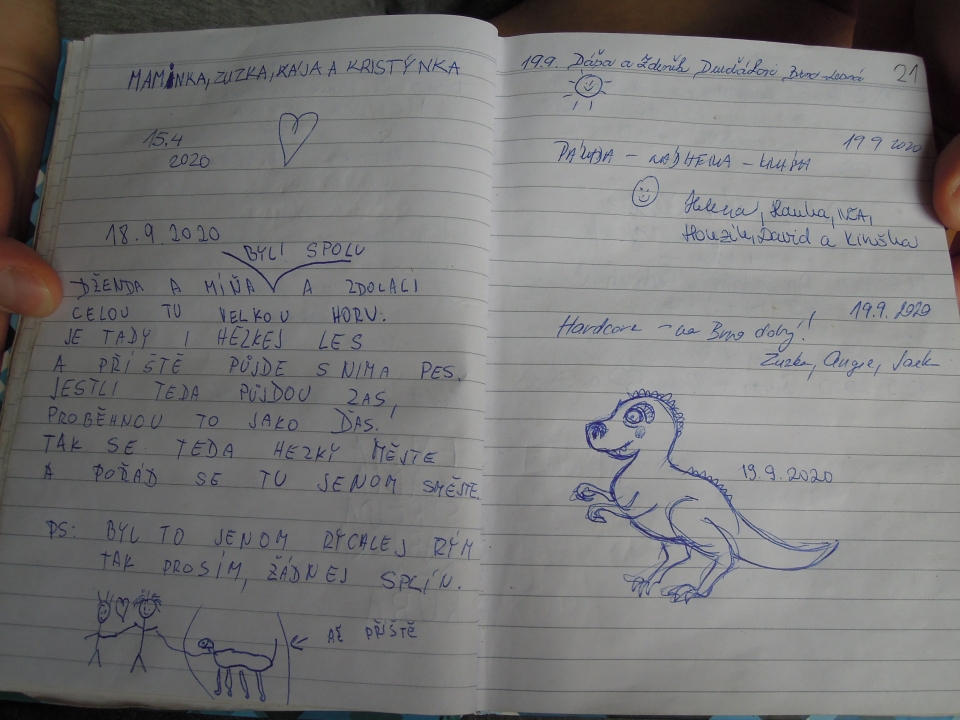 MAMINKA, ZUZKA, KÁJA A KRISTÝNKA
15.4
2020
18.9.2020
BYLI SPOLU
DŽENDA A MÍŇA A ZDOLALI
CELOU TU VELKOU HORU.
JE TADY I HEZKEJ LES
A PŘÍŠTĚ PŮJDE S NIMA PES.
JESTLI TEDA PŮJDOU ZAS,
PROBĚHNOU TO JAKO ĎAS.
TAK SE TEDA HEZKY MĚJTE
A POŘÁD SE TU JENOM SMĚJTE.
PS: BYL TO JENOM RYCHLEJ RÝM
TAK PROSÍM, ŽÁDNEJ SPLÍN.
AŽ PŘÍŠTĚ
19.9. Dáša a Zdeněk Brno-Lesná
21
19 9 2020
PARÁDA - NÁDHERA -
Helena, Hanka, NEA,
Honzík, David a
19.9.2020
Hardcore - na Brno dobrý!
Zuzka, Angie, Jack
19.9.2020